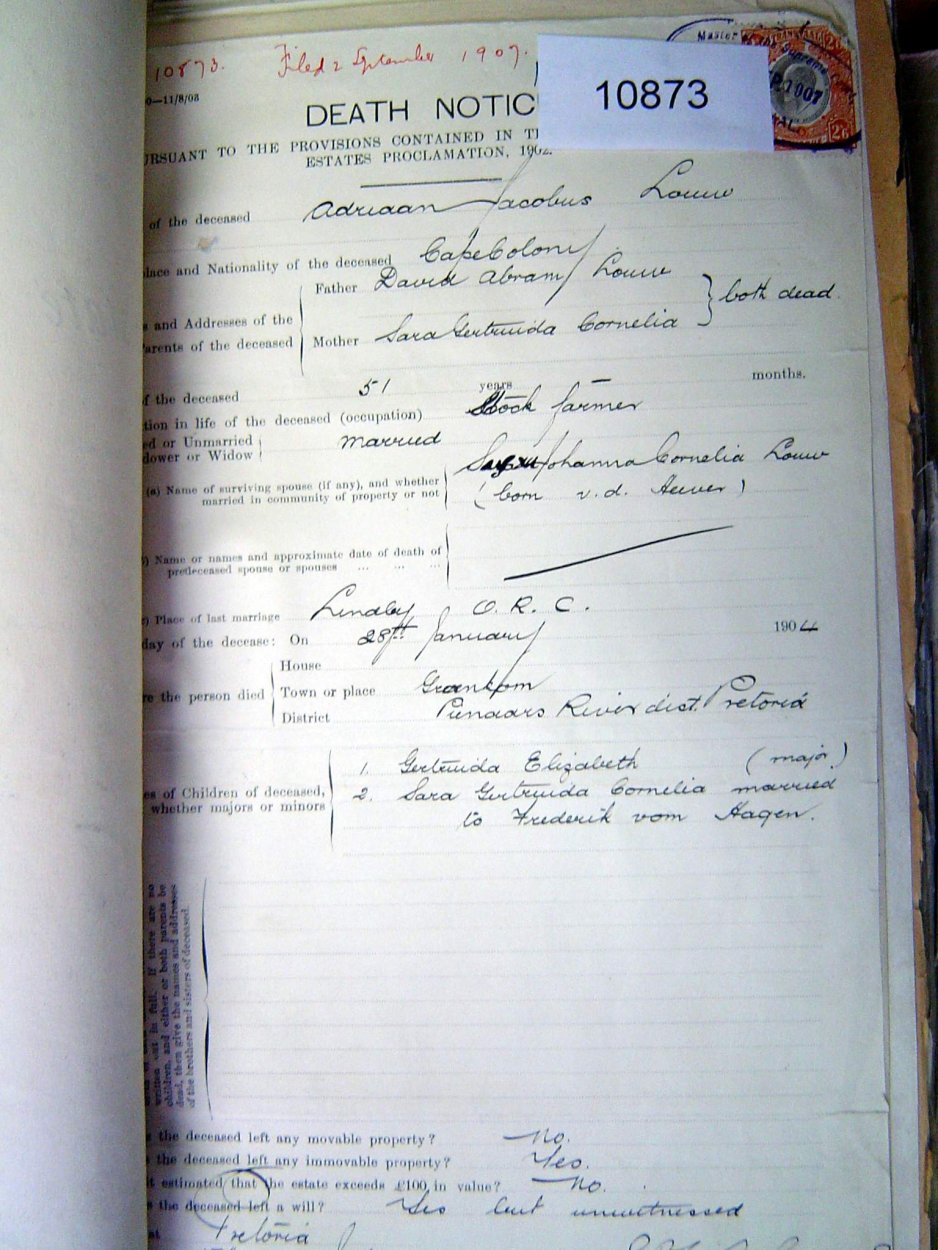 10873. Filed 2 September 1907.
10873
Master of the Supreme
1907
2/6
0—11/8/03
DEATH NOTIC
URSUANT TO THE PROVISIONS CONTAINED IN TH
ESTATES PROCLAMATION, 1902.
of the deceased Adriaan Jacobus Louw
lace and Nationality of the deceased Cape Colony
Father David Abram Louw
s and Addresses of the
both dead.
arents of the deceased
Mother Sara Gertruida Cornelia
f the deceased 51 years — months.
tion in life of the deceased (occupation) Stock farmer
ed or Unmarried married
dower or Widow
(a) Name of surviving spouse (if any), and whether Johanna Cornelia Louw
married in community of property or not (born v.d. Heever)
) Name or names and approximate date of death of
predeceased spouse or spouses ... ... ...
) Place of last marriage Lindley O. R. C.
day of the decease: On 28th January 190
House
re the person died Town or place
District Pienaars River dist. Pretoria
1. Gertruida Elizabeth (major)
es of Children of deceased, 2. Sara Gertruida Cornelia married
whether majors or minors to Frederik vom Hagen.
written out in full. If there are no
children, and either or both parents be
dead, then give the names and addresses
of the brothers and sisters of deceased.
the deceased left any movable property? No.
the deceased left any immovable property? Yes.
t estimated that the estate exceeds £100 in value? No.
the deceased left a will? Yes but unwitnessed
at Pretoria